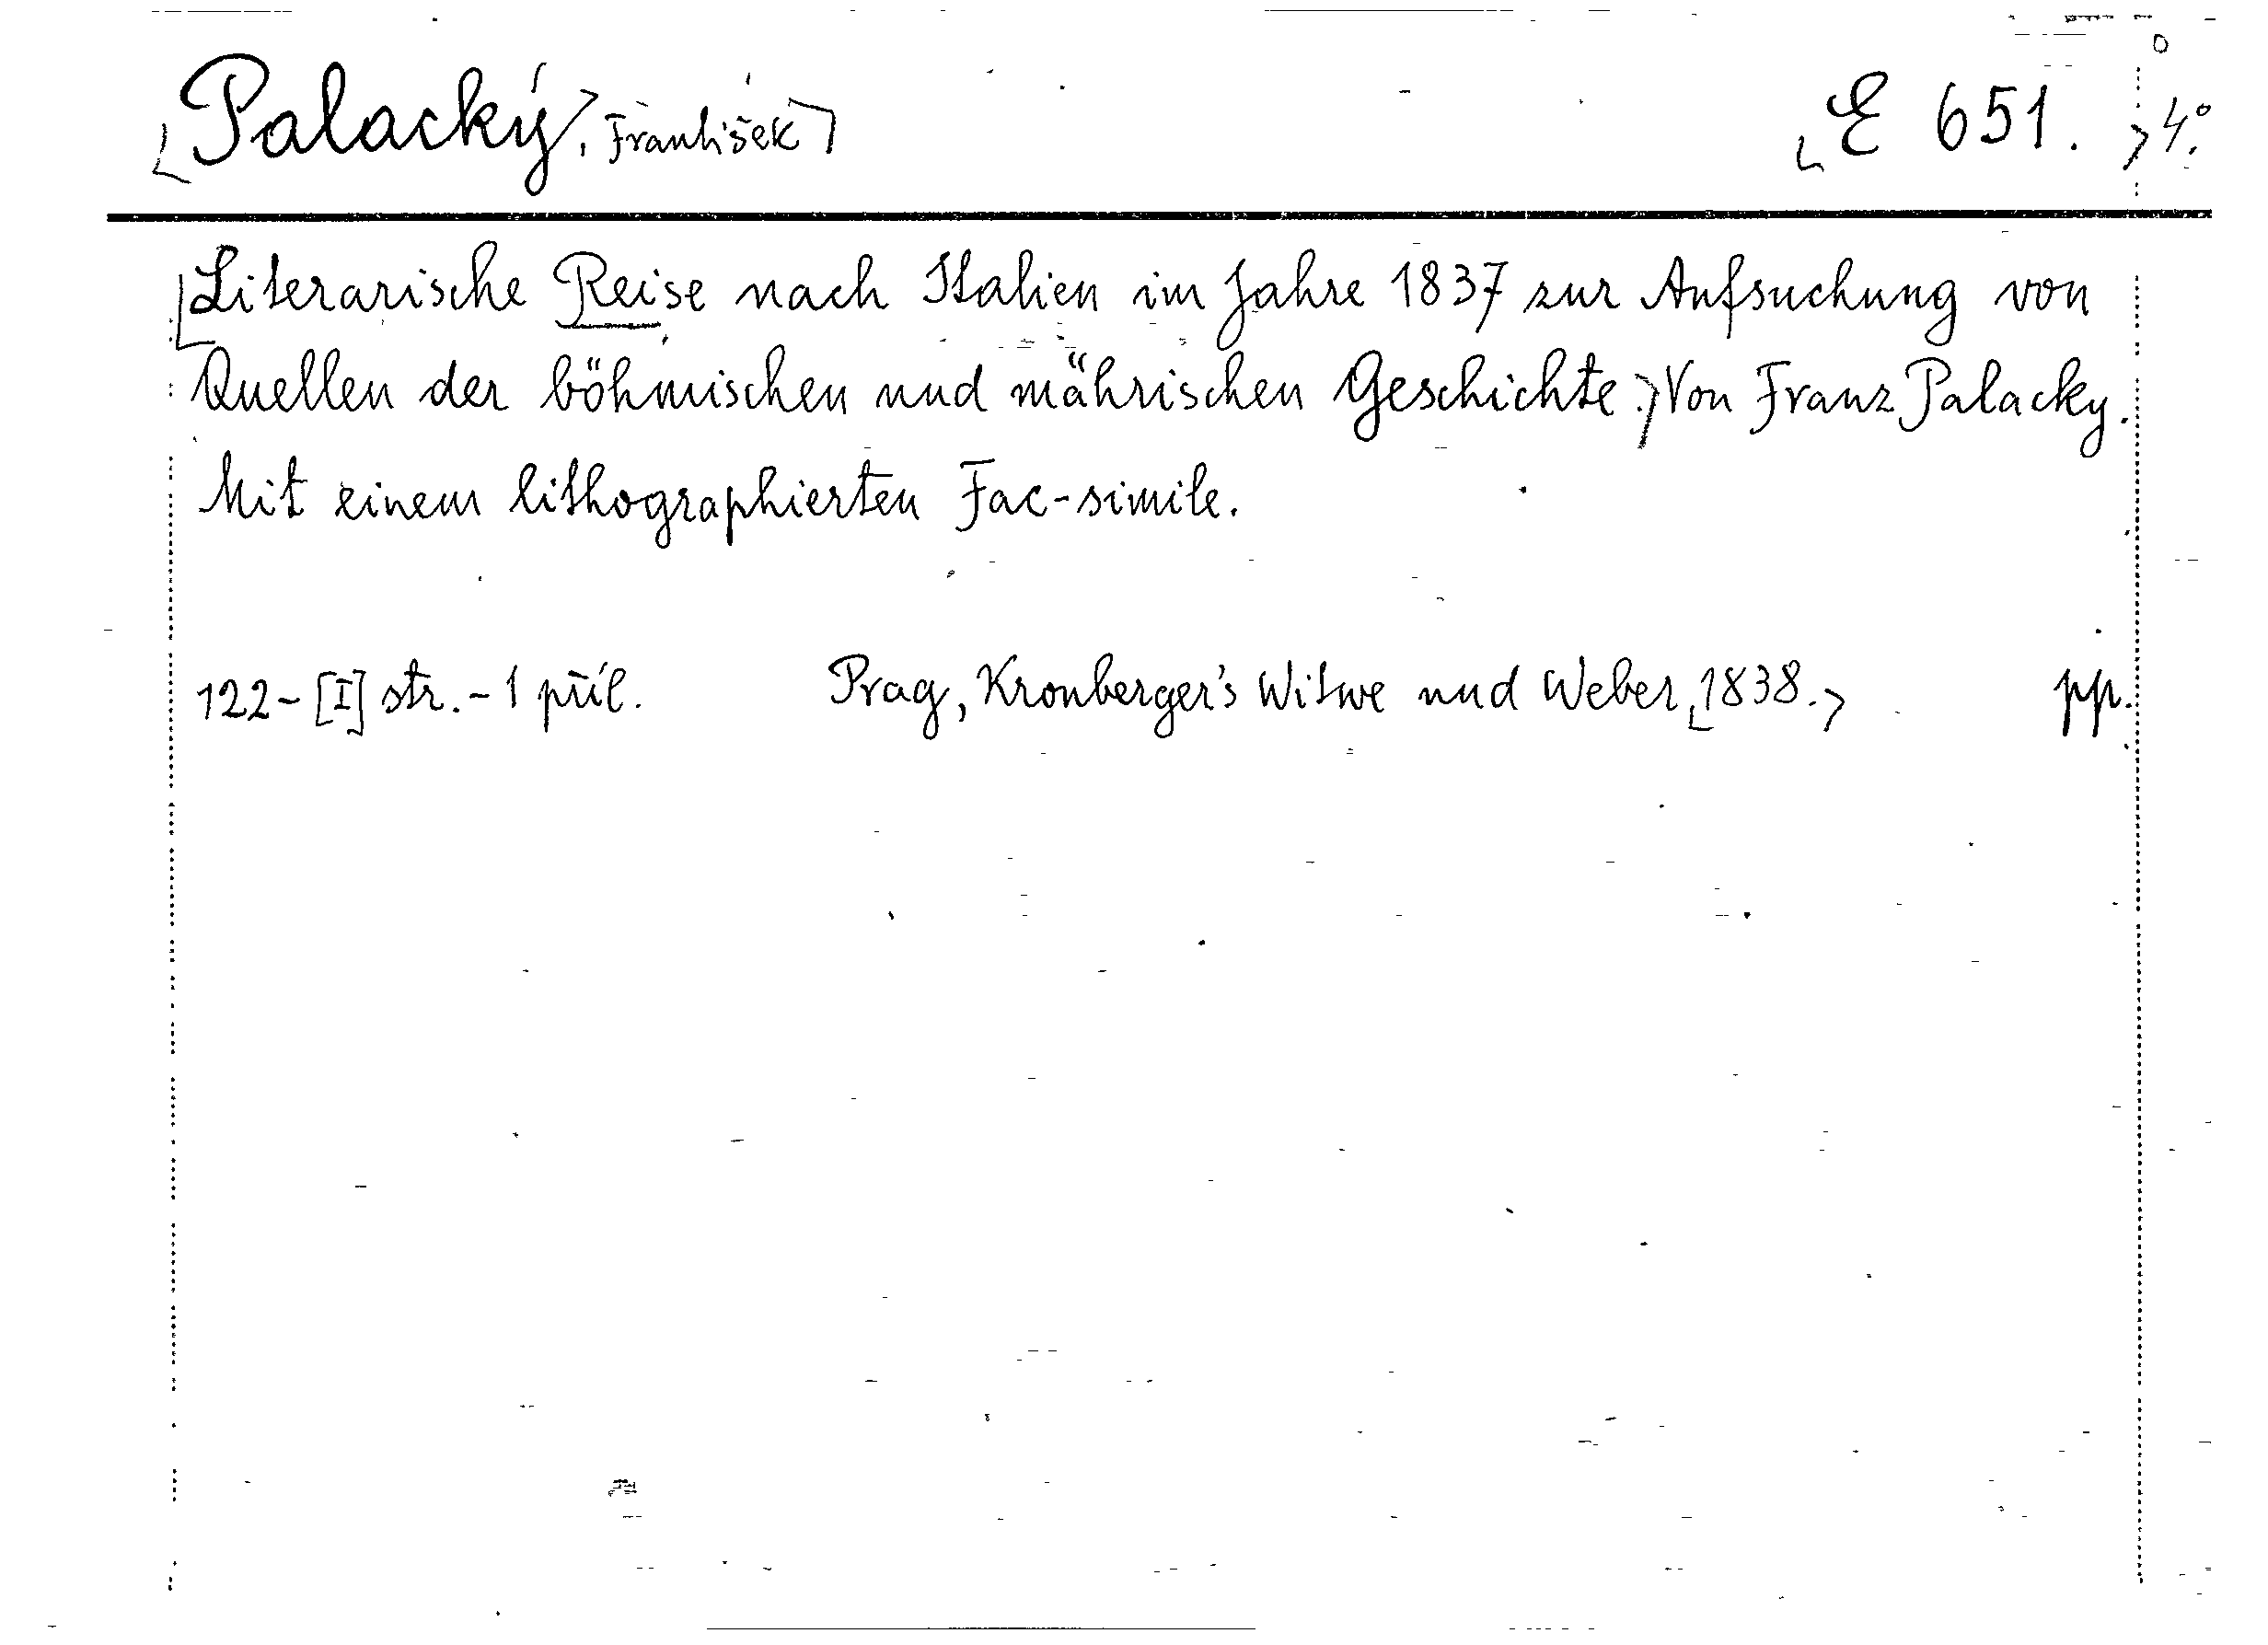 Palacký, František E 651. 4°.
Literarische Reise nach Italien im Jahre 1837 zur Aufsuchung von
Quellen der böhmischen und mährischen Geschichte. Von Franz Palacky.
Mit einem lithographierten Fac-simile.
122-[I] str. - 1 příl. Prag, Kronberger's Witwe und Weber, 1838. pp.